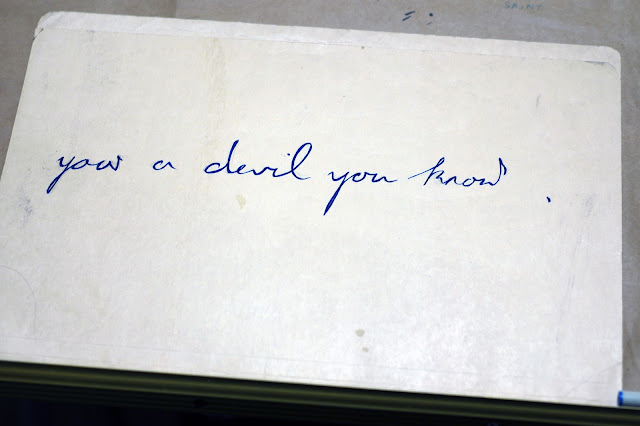 SAINT
your a devil you know.